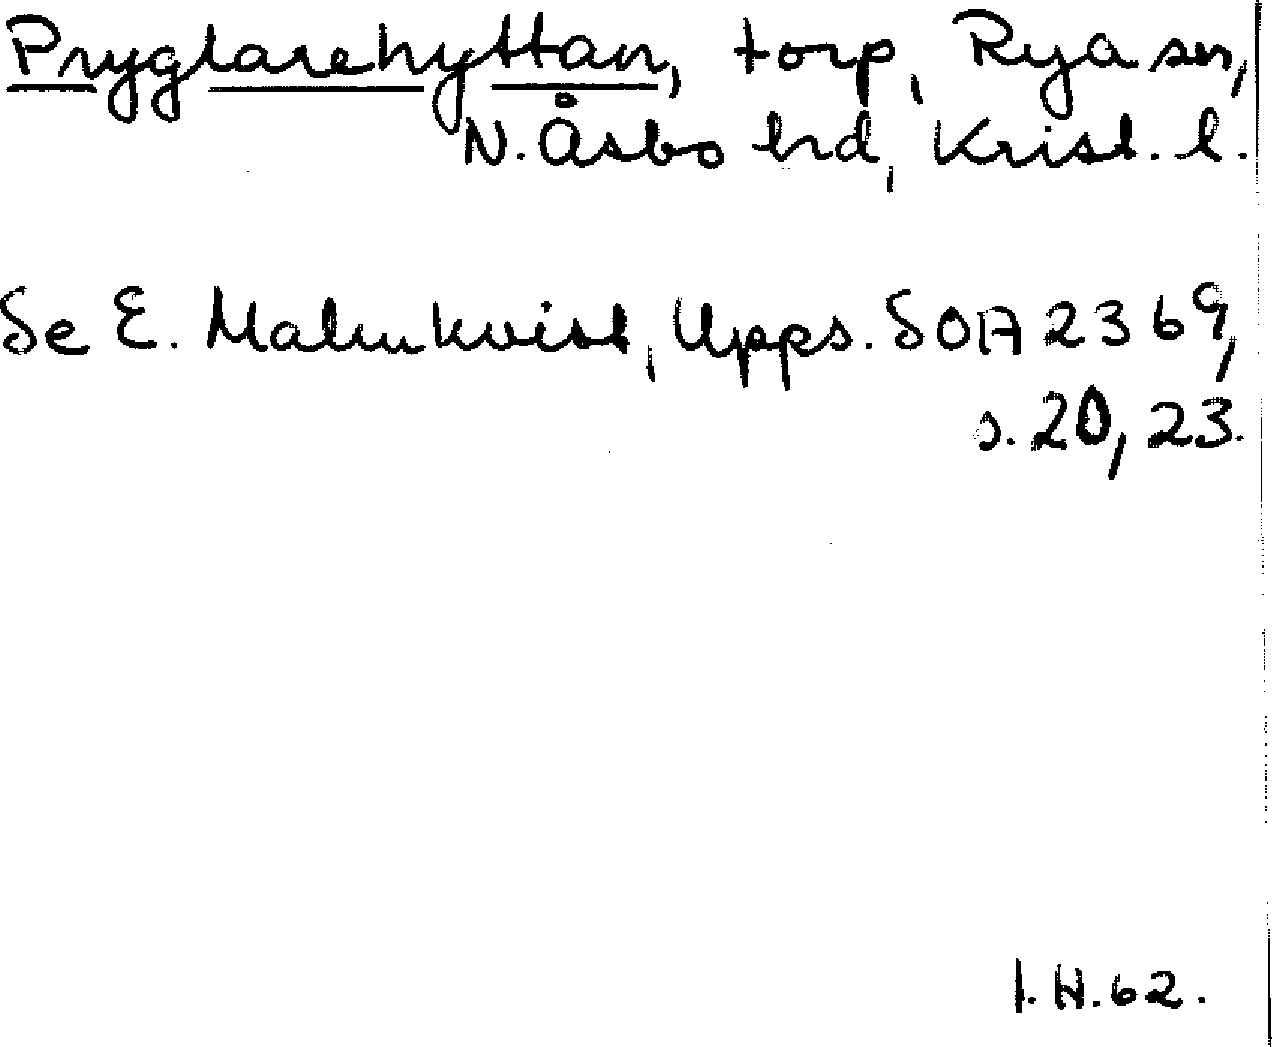 Pryglarehyttan, torp, Rya sn,
N. Åsbo hd, Krist. l.
Se E. Malmkvist, Upps. SOA 2369,
s. 20, 23.
I.H. 62.